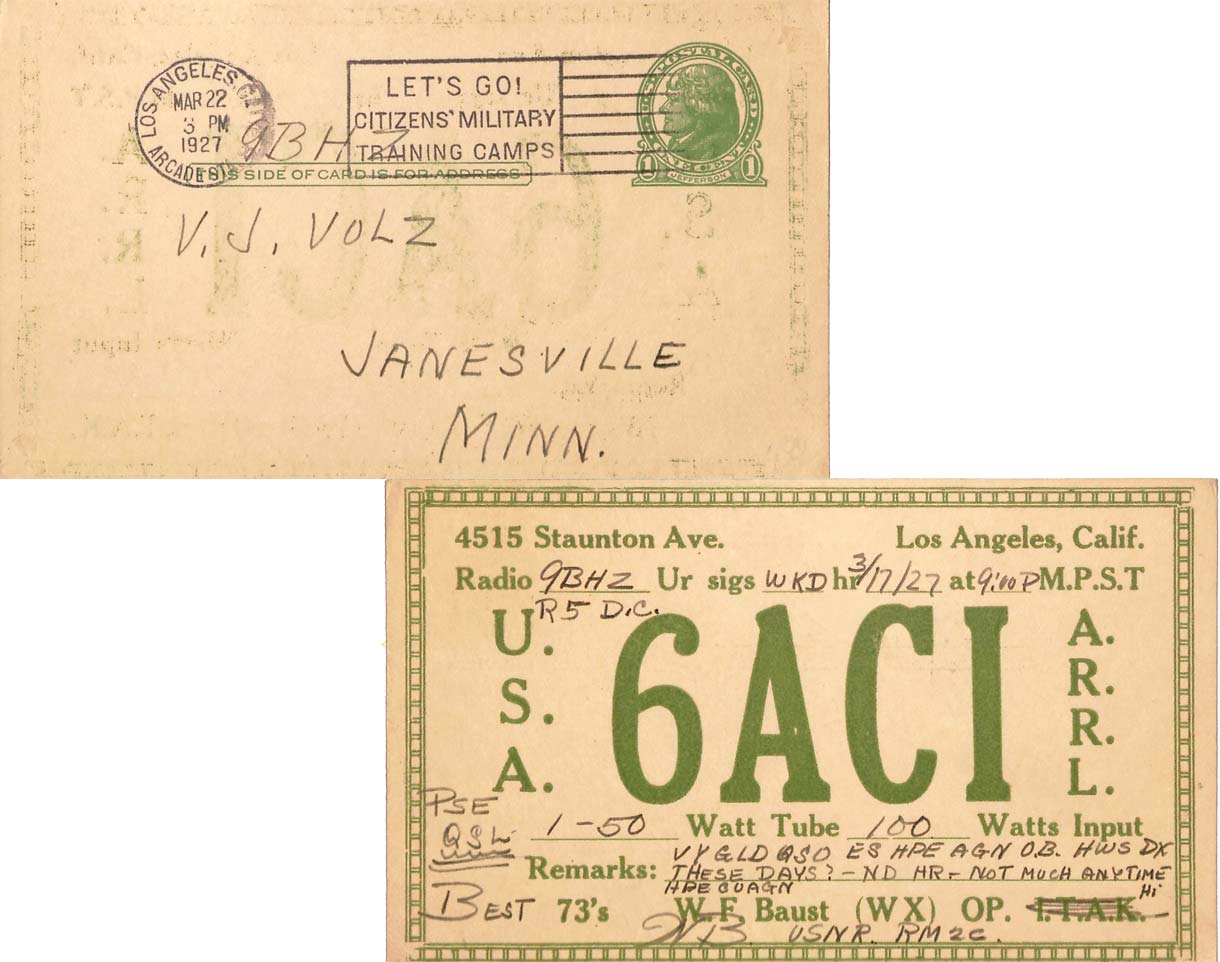 LOS ANGELES, CALIF.
MAR 22
3 PM
1927
ARCADE STA.
LET'S GO!
CITIZENS' MILITARY
TRAINING CAMPS
U·S·POSTAL CARD
ONE CENT
1 JEFFERSON 1
9BHZ
THIS SIDE OF CARD IS FOR ADDRESS
V. J. VOLZ
JANESVILLE
MINN.
4515 Staunton Ave. Los Angeles, Calif.
Radio 9BHZ Ur sigs WKD hr 3/17/27 at 9:00 P M.P.S.T
R5 D.C.
U.
S.
A.
6ACI
A.
R.
R.
L.
PSE
QSL
1-50 Watt Tube 100 Watts Input
Remarks: VY GLD QSO ES HPE AGN O.B. HWS DX
THESE DAYS? - ND HR - NOT MUCH ANYTIME
HPE CUAGN Hi
BEST 73's W. F. Baust (WX) OP. I.T.A.K.
WB USNR. RM2C.